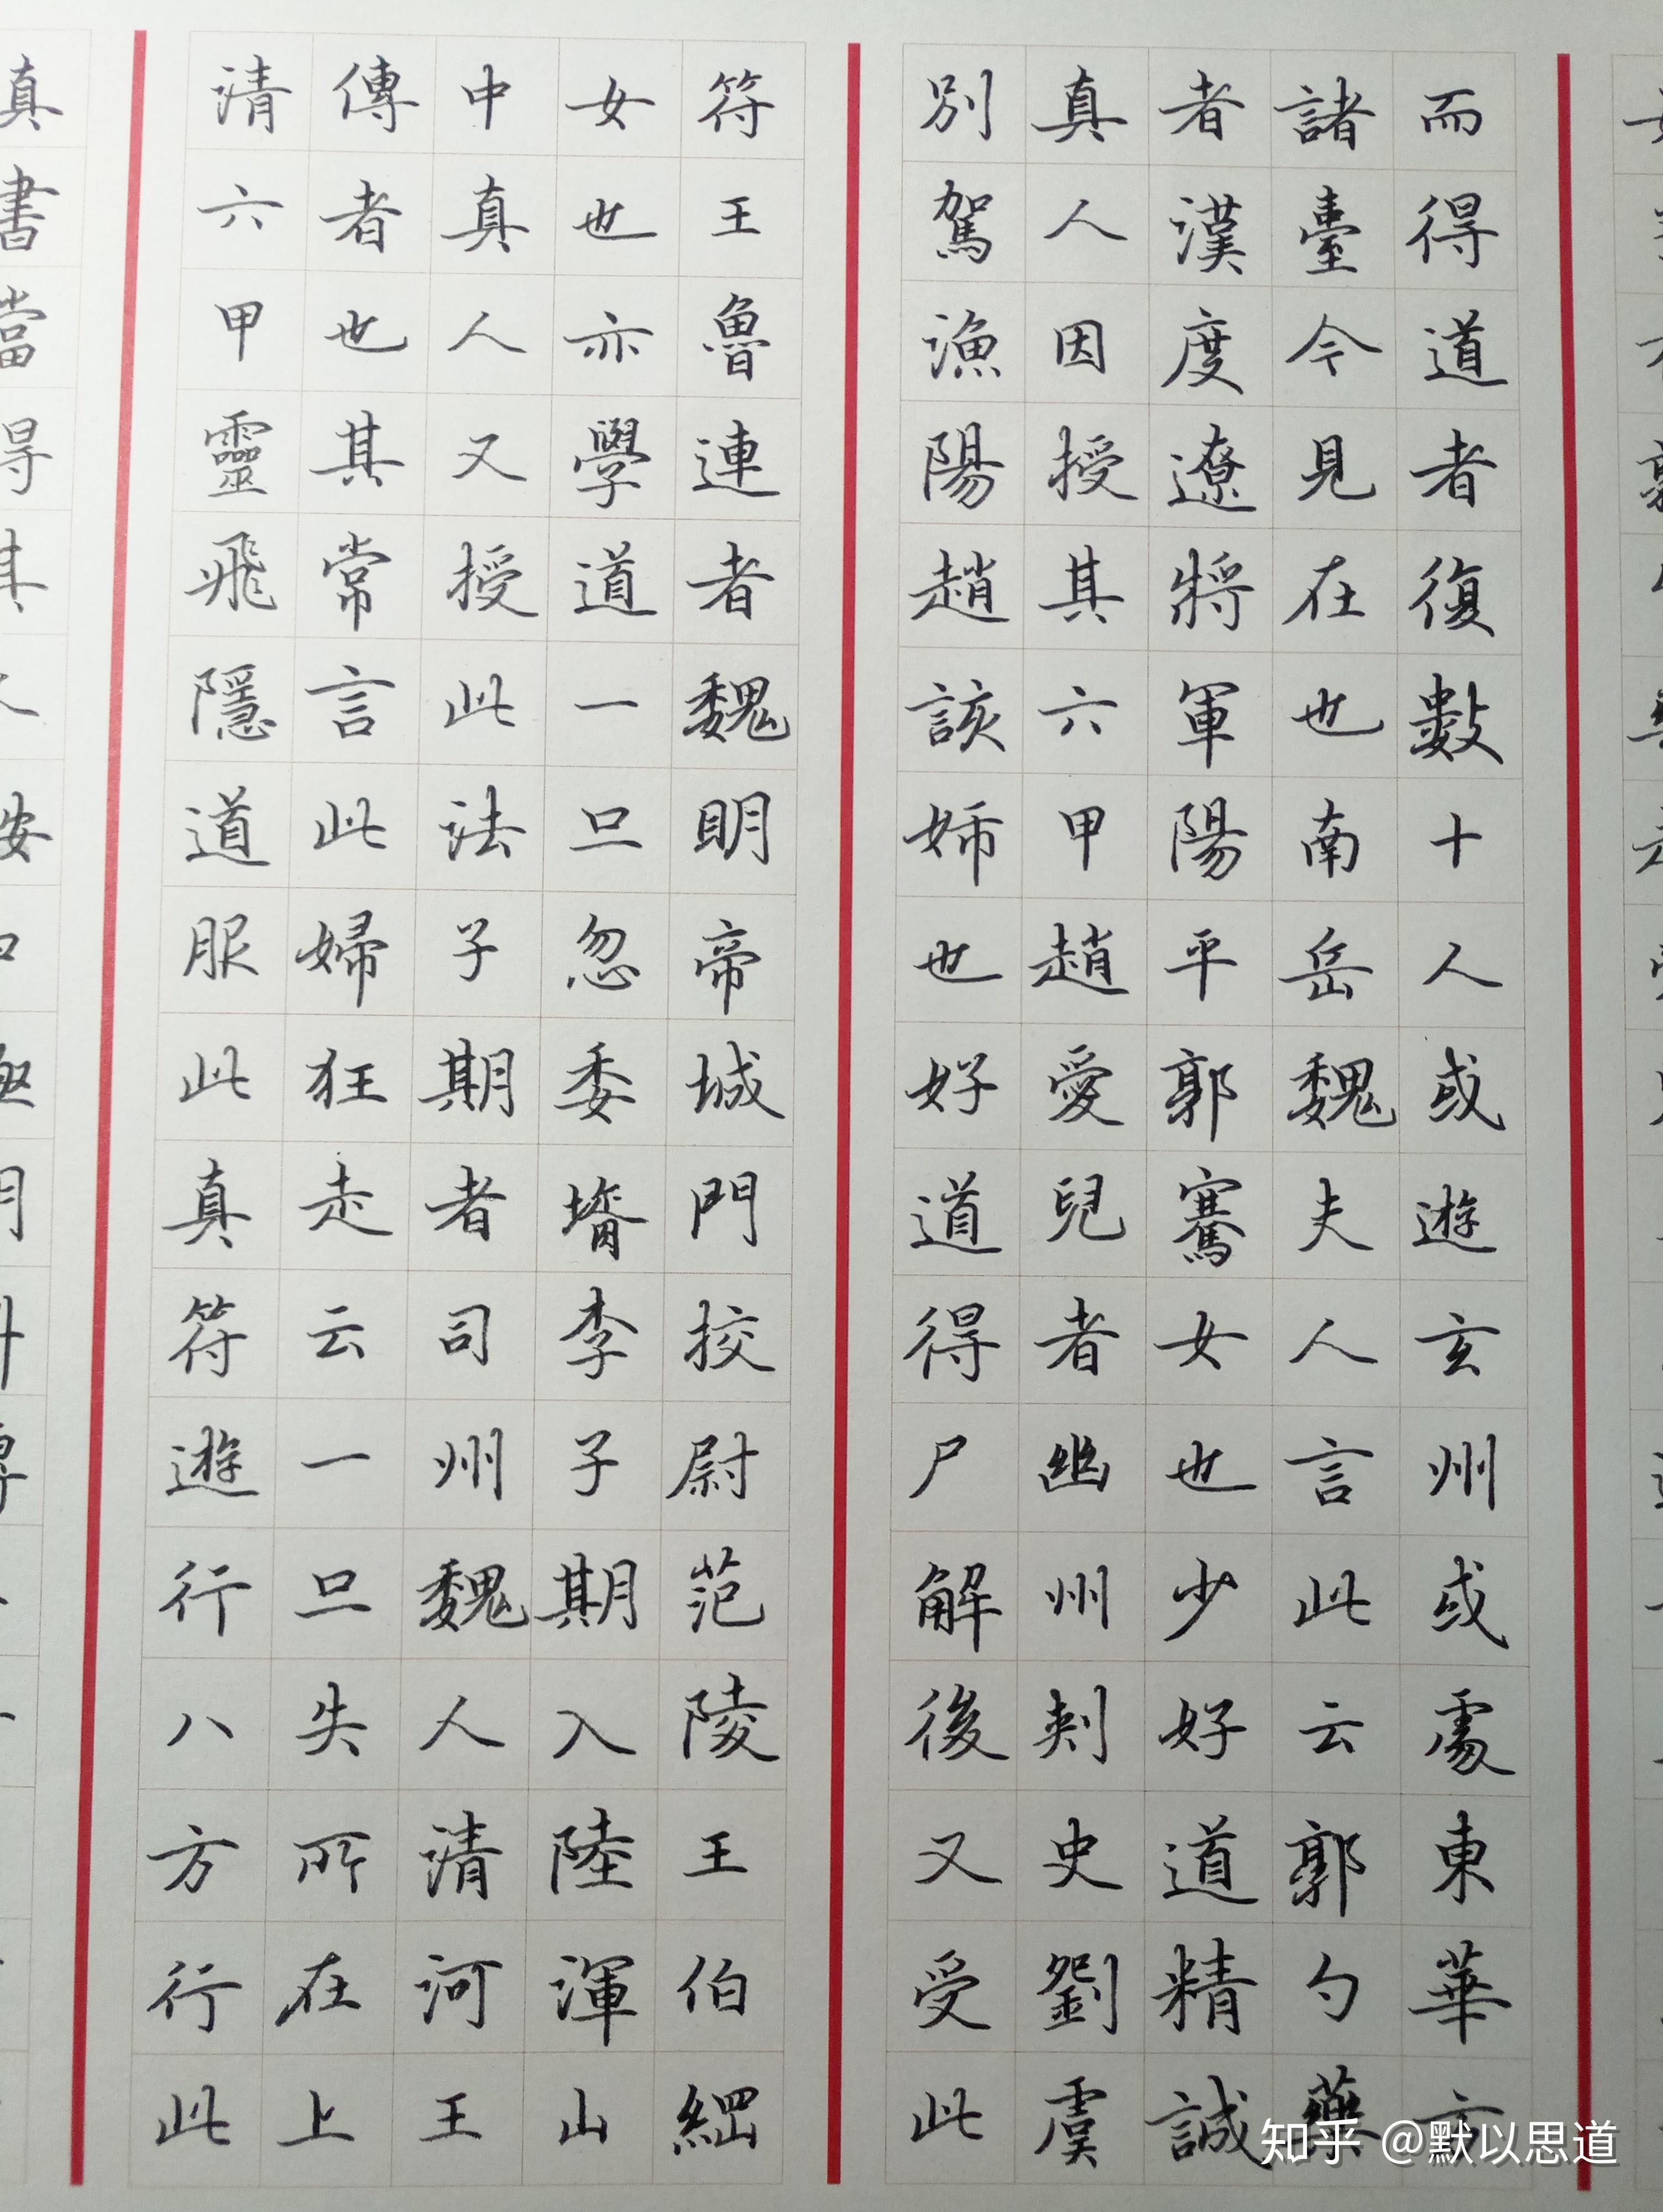 而得道者復數十人或遊玄州或處東華方
諸臺今見在也南岳魏夫人言此云郭勺藥
者漢度遼將軍陽平郭騫女也少好道精誠
真人因授其六甲趙愛兒者幽州刺史劉虞
別駕漁陽趙該姉也好道得尸解後又受此
符王魯連者魏明帝城門挍尉范陵王伯綱
女也亦學道一旦忽委壻李子期入陸渾山
中真人又授此法子期者司州魏人清河王
傳者也其常言此婦狂走云一旦失所在上
清六甲靈飛隱道服此真符遊行八方行此
真書當得其
知乎 @默以思道